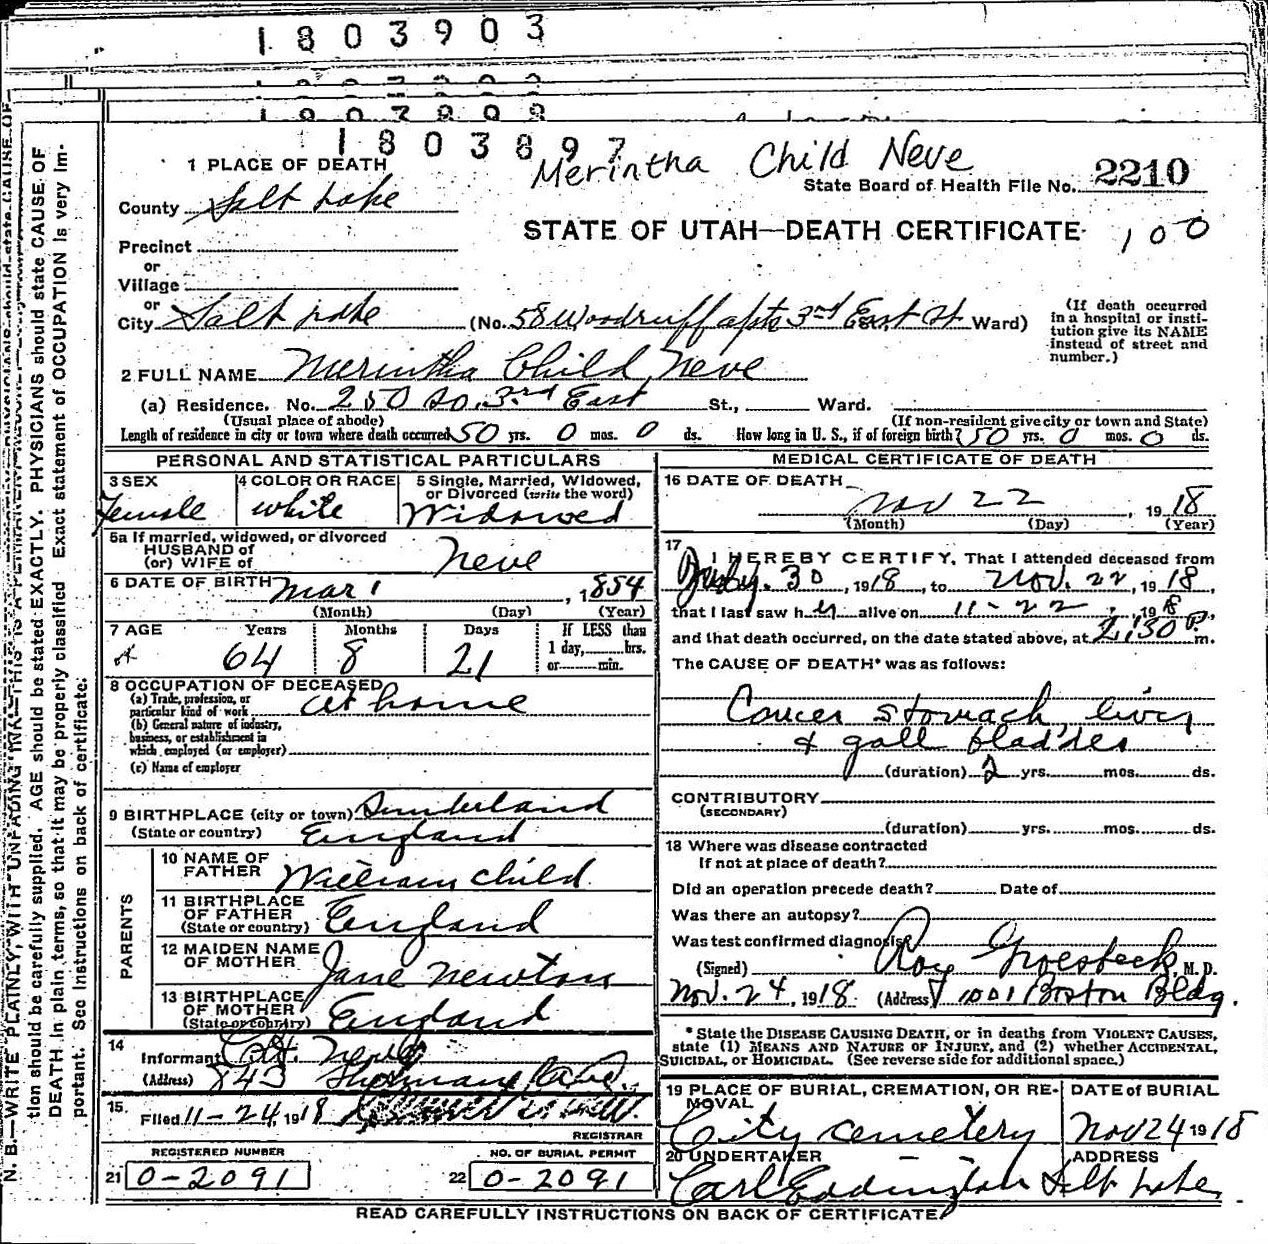 1803903
1803897
Merintha Child Neve
1 PLACE OF DEATH
State Board of Health File No. 2210
County Salt Lake
STATE OF UTAH—DEATH CERTIFICATE
100
Precinct
or
Village
or
City Salt Lake (No. 58 Woodruff apts 3rd East St Ward)
(If death occurred
in a hospital or insti-
tution give its NAME
instead of street and
number.)
2 FULL NAME Merintha Child Neve
(a) Residence. No. 250 So. 3rd East St., Ward.
(Usual place of abode) (If non-resident give city or town and State)
Length of residence in city or town where death occurred 50 yrs. 0 mos. 0 ds. How long in U. S., if of foreign birth? 50 yrs. 0 mos. 0 ds.
PERSONAL AND STATISTICAL PARTICULARS
3 SEX
Female
4 COLOR OR RACE
white
5 Single, Married, Widowed,
or Divorced (write the word)
Widowed
5a If married, widowed, or divorced
HUSBAND of
(or) WIFE of Neve
6 DATE OF BIRTH Mar 1, 1854
(Month) (Day) (Year)
7 AGE Years Months Days
64 8 21
If LESS than
1 day, hrs.
or min.
8 OCCUPATION OF DECEASED
(a) Trade, profession, or
particular kind of work at home
(b) General nature of industry,
business, or establishment in
which employed (or employer)
(c) Name of employer
9 BIRTHPLACE (city or town) Sunderland
(State or country) England
PARENTS
10 NAME OF
FATHER William Child
11 BIRTHPLACE
OF FATHER
(State or country) England
12 MAIDEN NAME
OF MOTHER Jane Newton
13 BIRTHPLACE
OF MOTHER
(State or country) England
14
Informant Neve
(Address) 843 Sherman Ave.
15.
Filed 11-24, 1918
REGISTRAR
REGISTERED NUMBER
21 0-2091
NO. OF BURIAL PERMIT
22 0-2091
MEDICAL CERTIFICATE OF DEATH
16 DATE OF DEATH
Nov 22, 1918
(Month) (Day) (Year)
17
I HEREBY CERTIFY, That I attended deceased from
30, 1918, to Nov. 22, 1918,
that I last saw her alive on 11-22, 1918,
and that death occurred, on the date stated above, at 2:30 P. m.
The CAUSE OF DEATH* was as follows:
Cancer stomach, liver
& gall bladder
(duration) 2 yrs. mos. ds.
CONTRIBUTORY
(SECONDARY)
(duration) yrs. mos. ds.
18 Where was disease contracted
If not at place of death?
Did an operation precede death? Date of
Was there an autopsy?
Was test confirmed diagnosis?
(Signed) Roy Groesbeck, M. D.
Nov. 24, 1918 (Address) 1001 Boston Bldg.
* State the DISEASE CAUSING DEATH, or in deaths from VIOLENT CAUSES,
state (1) MEANS AND NATURE OF INJURY, and (2) whether ACCIDENTAL,
SUICIDAL, or HOMICIDAL. (See reverse side for additional space.)
19 PLACE OF BURIAL, CREMATION, OR RE-
MOVAL
City cemetery
DATE of BURIAL
Nov 24 1918
20 UNDERTAKER
Carl Eddington
ADDRESS
Salt Lake
READ CAREFULLY INSTRUCTIONS ON BACK OF CERTIFICATE
N. B.—WRITE PLAINLY, WITH UNFADING INK—THIS IS A PERMANENT
tion should be carefully supplied. AGE should be stated EXACTLY. PHYSICIANS should state CAUSE OF
DEATH in plain terms, so that it may be properly classified. Exact statement of OCCUPATION is very im-
portant. See instructions on back of certificate.